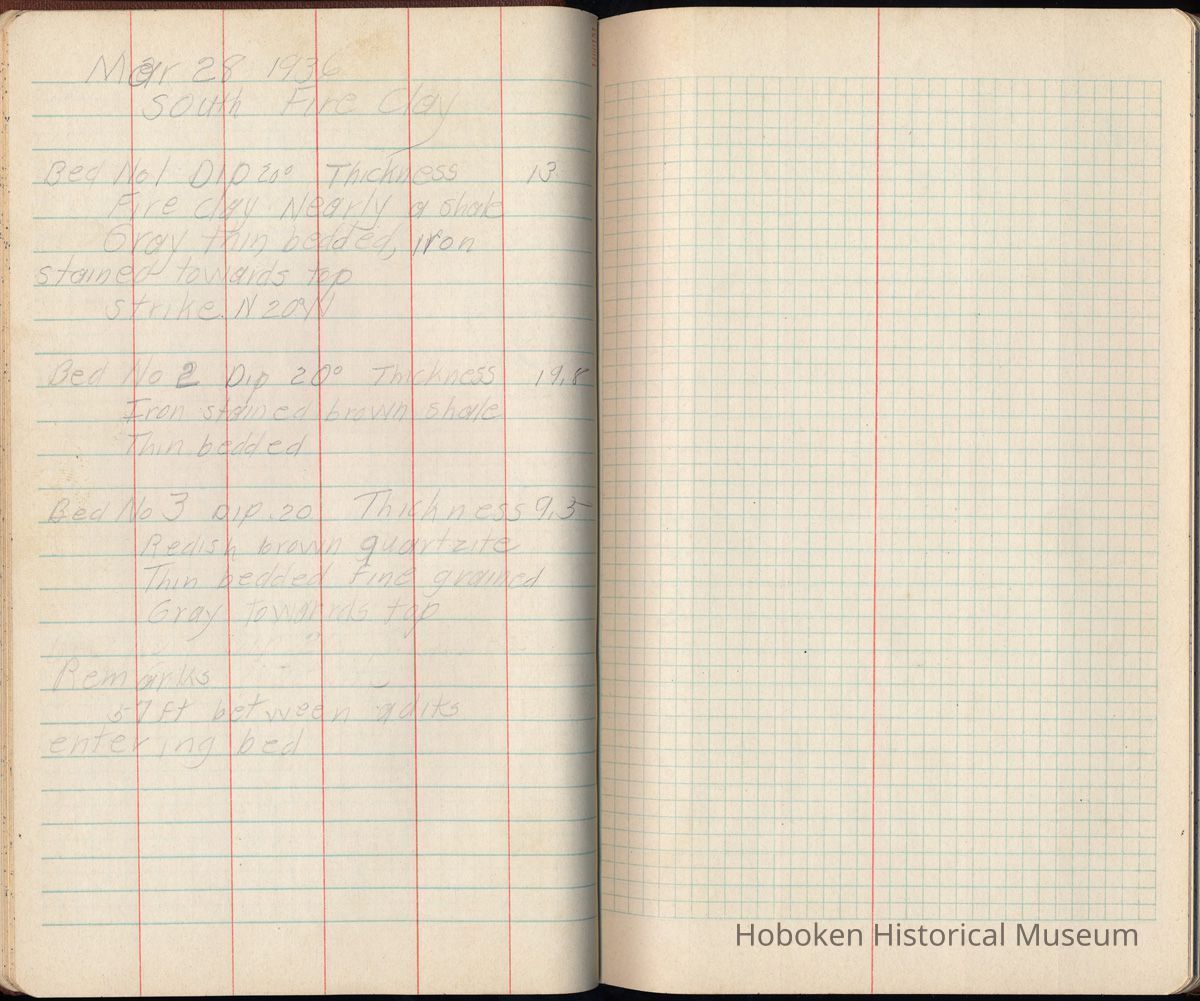 Mar 28 1936
South Fire Clay
Bed No1 Dip 20° Thickness 13
Fire clay Nearly a shale
Gray thin bedded, iron
stained towards top
strike N20W
Bed No 2 Dip 20° Thickness 19.8
Iron stained brown shale
Thin bedded
Bed No 3 Dip 20 Thickness 9.5
Redish brown quartzite
Thin bedded fine grained
Gray towards top
Remarks
57 ft between adits
entering bed
Hoboken Historical Museum